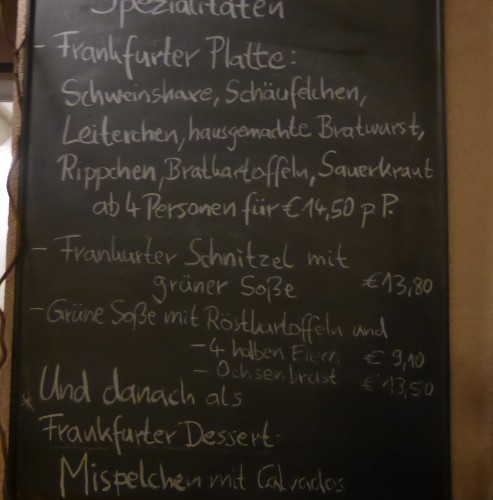 Spezialitäten
- Frankfurter Platte:
Schweinshaxe, Schäufelchen,
Leiterchen, hausgemachte Bratwurst,
Rippchen, Bratkartoffeln, Sauerkraut
ab 4 Personen für € 14,50 p P.
- Frankurter Schnitzel mit
grüner Soße €13,80
- Grüne Soße mit Röstkartoffeln und
- 4 halben Eiern € 9,10
- Ochsenbrust € 13,50
* Und danach als
Frankfurter Dessert
Mispelchen mit Calvados